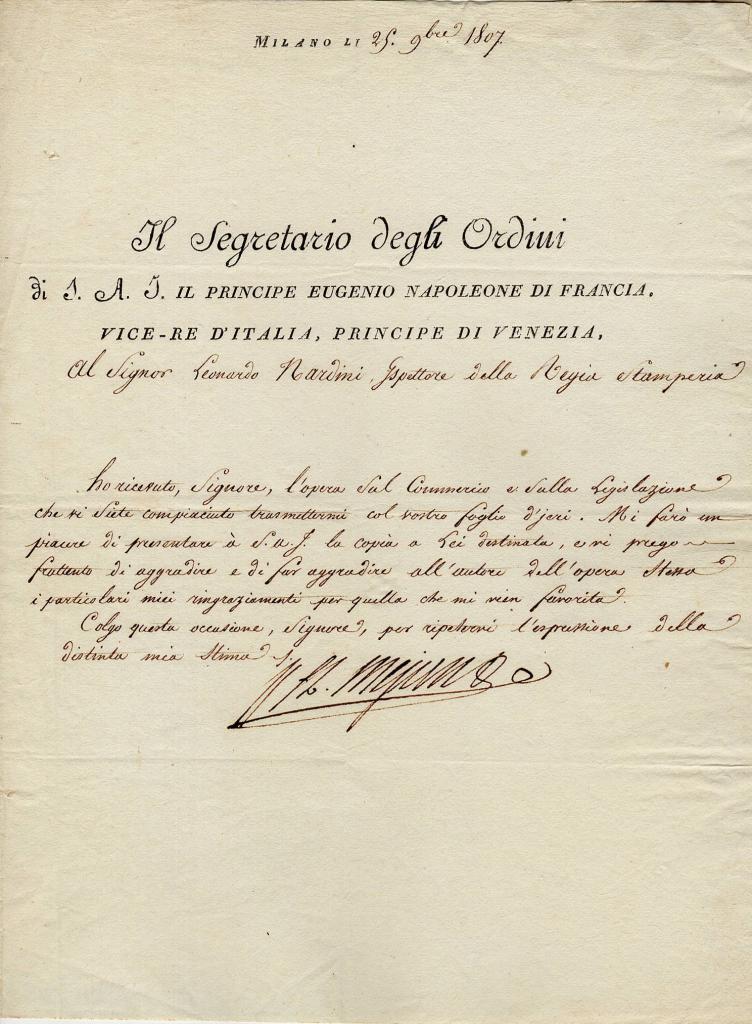 MILANO LI 25. 9bre 1807.
Il Segretario degli Ordini
di S. A. I. IL PRINCIPE EUGENIO NAPOLEONE DI FRANCIA.
VICE-RE D'ITALIA, PRINCIPE DI VENEZIA,
Al Signor Leonardo Nardini, Ispettore della Regia Stamperia
ho ricevuto, Signore, l'opera Sul Commercio e Sulla Legislazione
che vi Siete compiaciuto trasmettermi col vostro foglio d'jeri. Mi farò un
piacere di presentare à S.a.I. la copia a Lei destinata, e vi prego
frattanto di aggradire e di far aggradire all'autore dell'opera Stessa
i particolari miei ringraziamenti per quella che mi vien favorita.
Colgo questa occasione, Signore, per ripetervi l'espressione della
distinta mia Stima